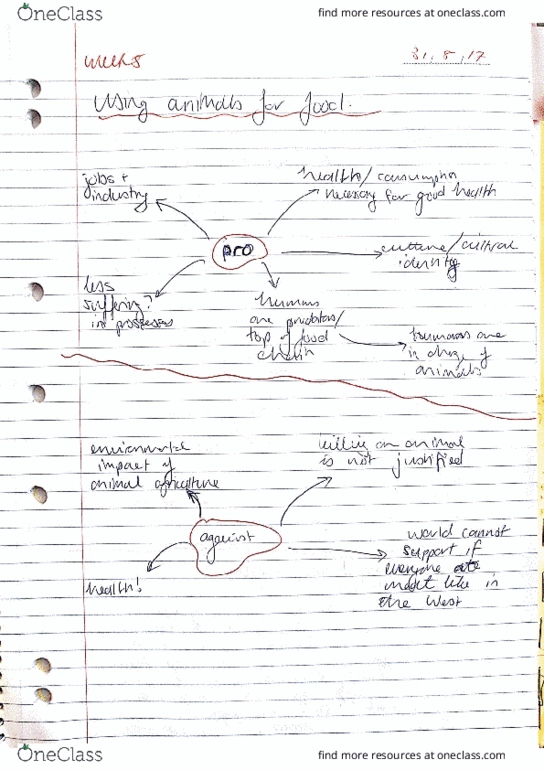 OneClass
find more resources at oneclass.com
week 5
31.5.17
Using animals for food.
jobs +
industry
health/consumption
necessary for good health
pro
culture/cultural
identity
less
suffering?
in processes
humans
are predators/
top of food
chain
humans are
in charge of
animals
environmental
impact of
animal agriculture
killing an animal
is not justified
against
world cannot
support if
everyone ate
meat like in
the West
health!
OneClass
find more resources at oneclass.com